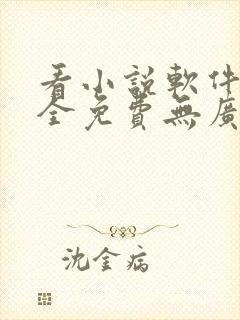 看小説軟件
全免費無廣
沈金病